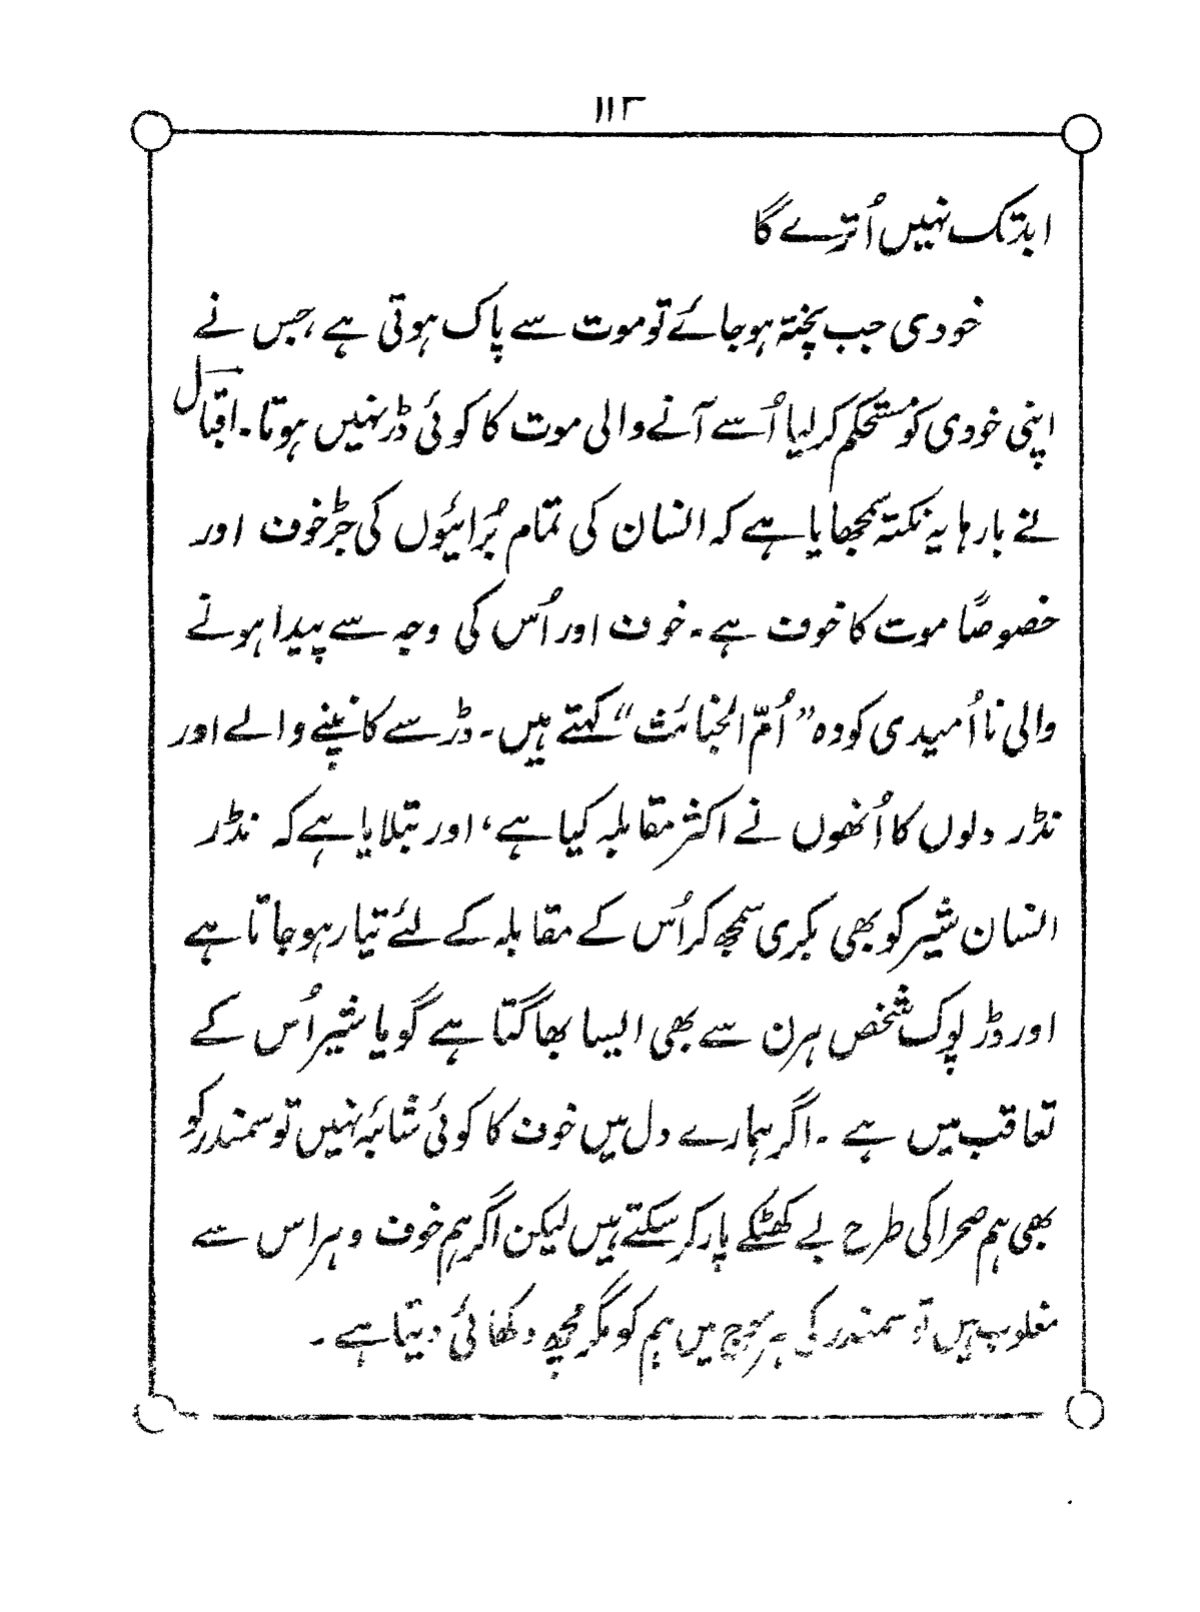 ۱۱۳
ابدتک نہیں اُترے گا
خودی جب پختہ ہوجائے تو موت سے پاک ہوتی ہے، جس نے
اپنی خودی کو مستحکم کرلیا اُسے آنے والی موت کا کوئی ڈر نہیں ہوتا۔ اقبال
نے بارہا یہ نکتہ سمجھایا ہے کہ انسان کی تمام بُرائیوں کی جڑ خوف اور
خصوصًا موت کا خوف ہے۔ خوف اور اُس کی وجہ سے پیدا ہونے
والی نا اُمیدی کو وہ ”اُمّ الخبائث“ کہتے ہیں۔ ڈر سے کانپنے والے اور
نڈر دلوں کا اُنھوں نے اکثر مقابلہ کیا ہے، اور بتلایا ہے کہ نڈر
انسان شیر کو بھی بکری سمجھ کر اُس کے مقابلہ کے لئے تیار ہوجاتا ہے
اور ڈرپوک شخص ہرن سے بھی ایسا بھاگتا ہے گویا شیر اُس کے
تعاقب میں ہے۔ اگر ہمارے دل میں خوف کا کوئی شائبہ نہیں تو سمندر کو
بھی ہم صحرا کی طرح بے کھٹکے پار کرسکتے ہیں لیکن اگر ہم خوف و ہراس سے
مغلوب ہیں تو سمندر کی ہر موج میں ہم کو مگر مچھ دکھائی دیتا ہے۔